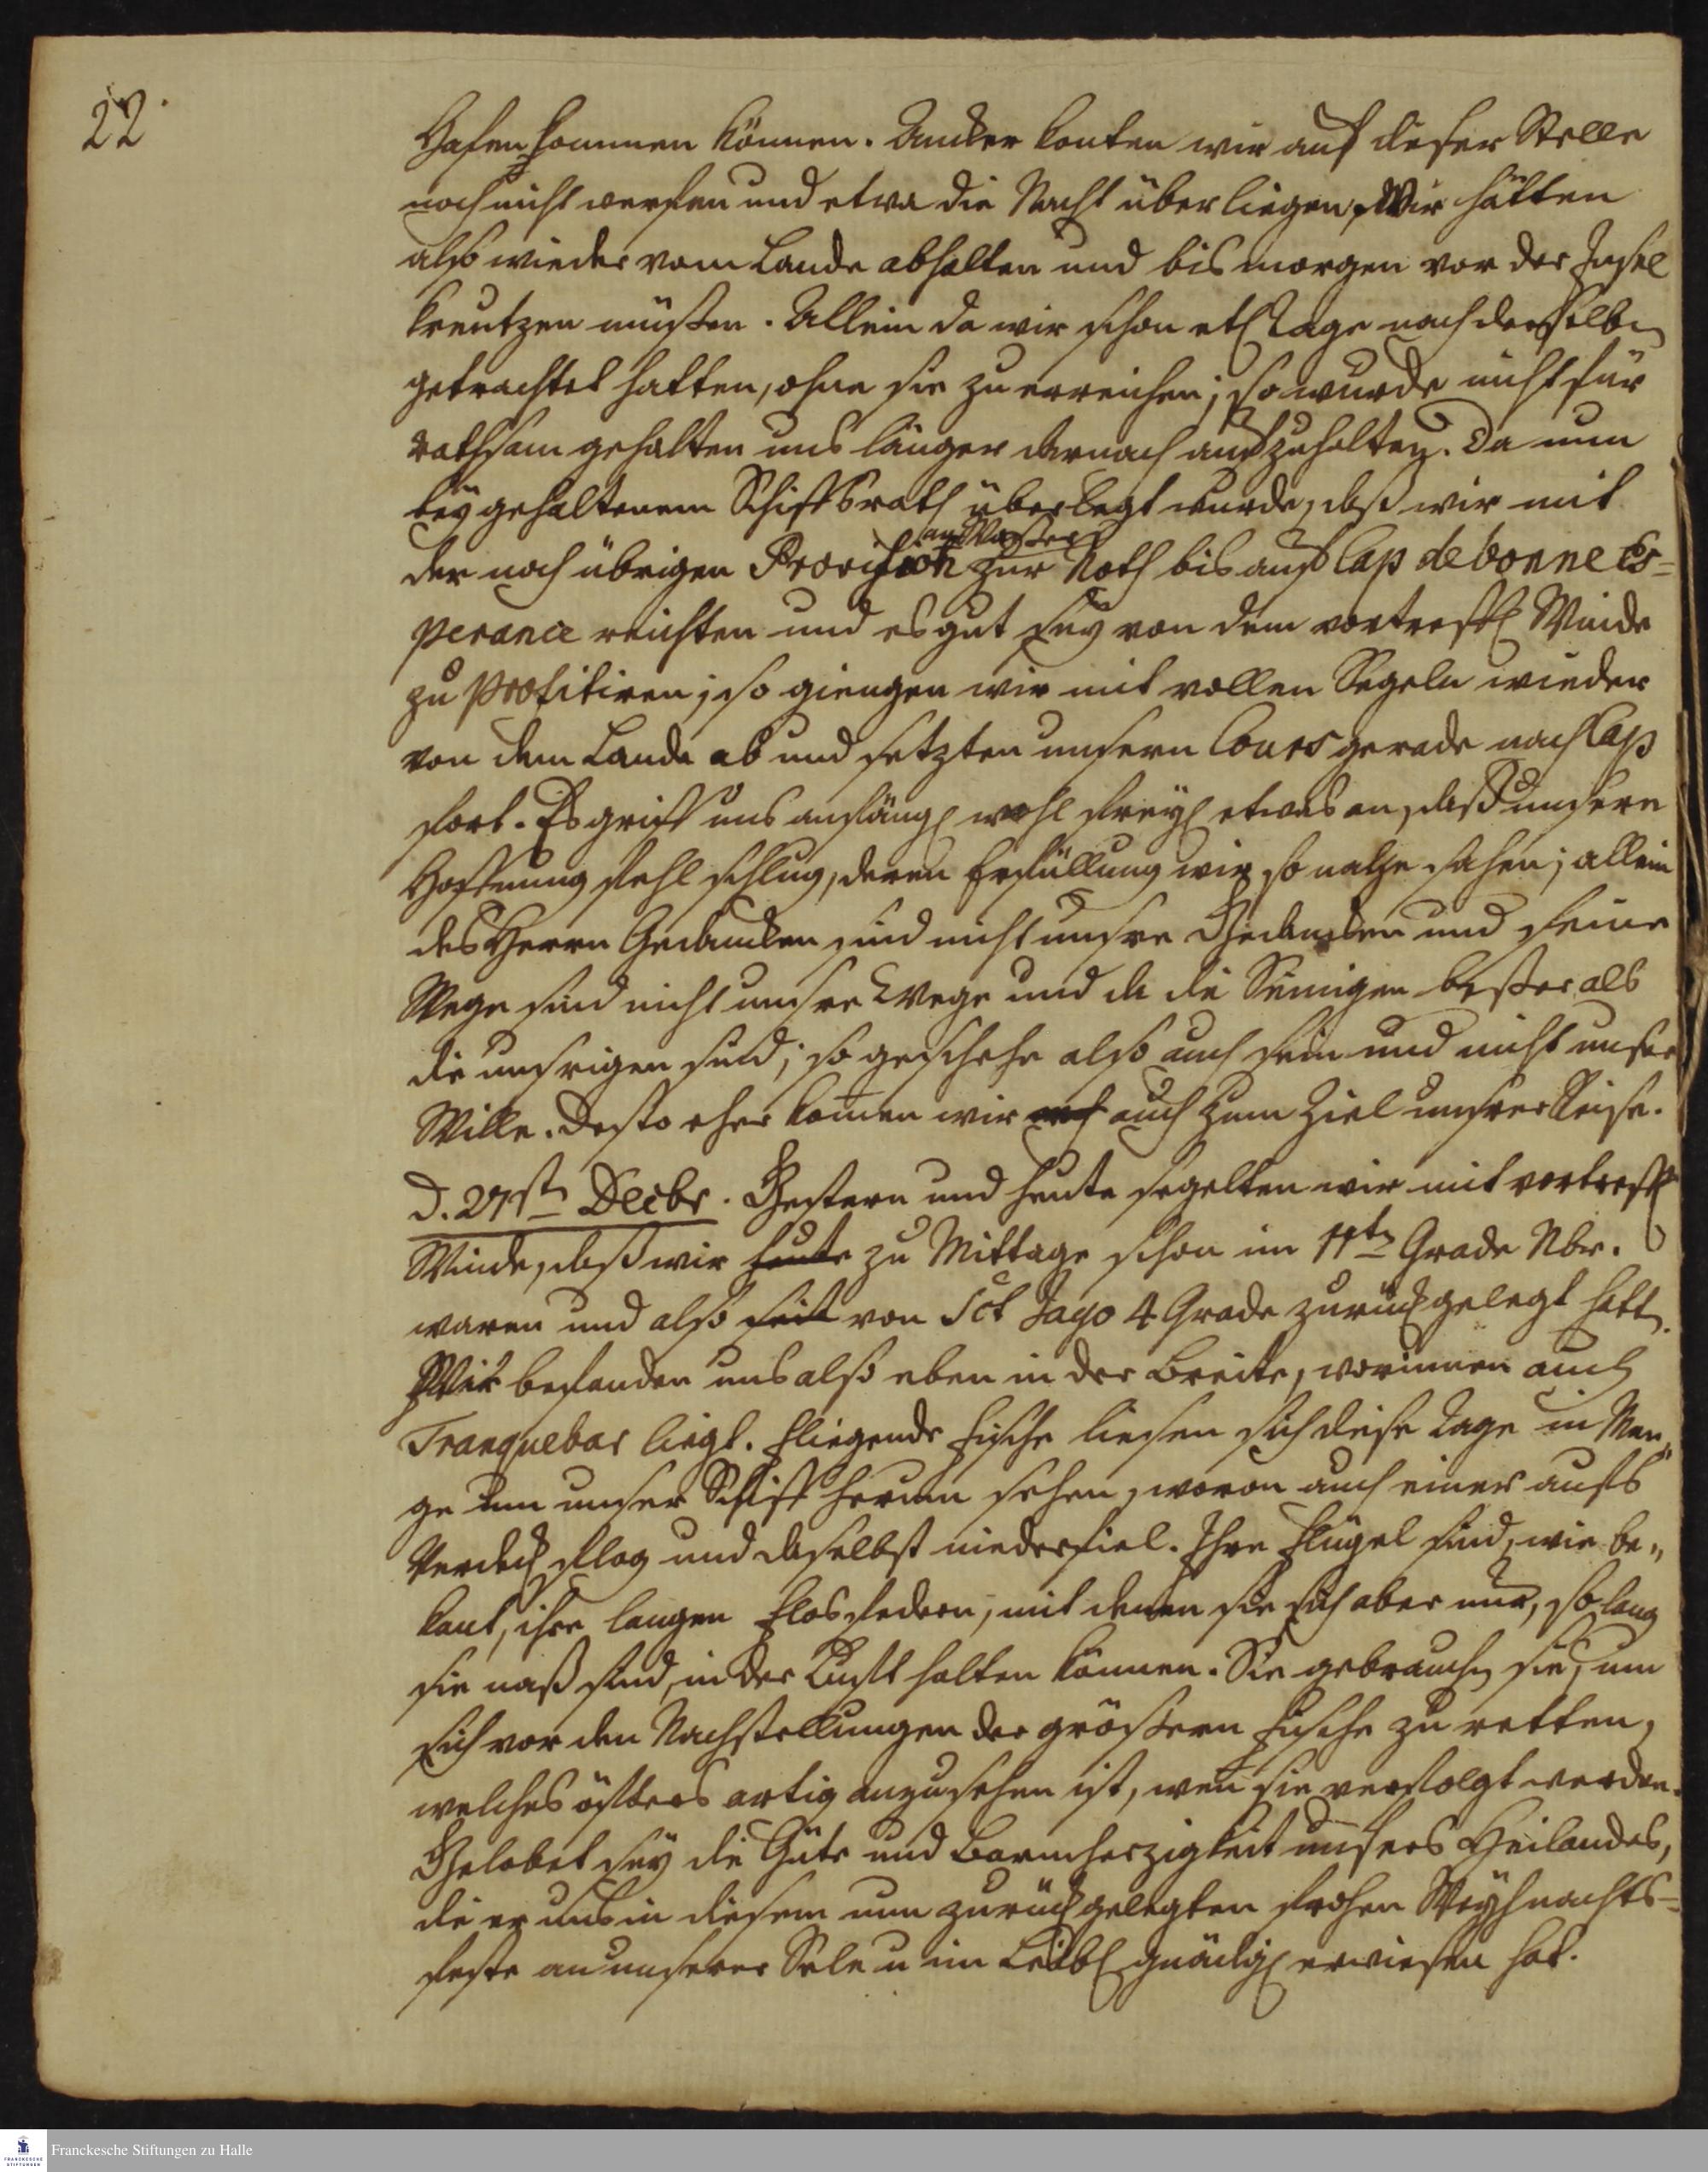 22.
Hafen kommen können. Ancker konten wir auf dieser Stelle
noch nicht werfen und etwa die Nacht über liegen, Wir hätten
also wieder vom Lande abhalten und bis morgen vor der Insel
kreutzen müssen. Allein da wir schon etl Tage nach derselben
getrachtet hatten, ohne sie zu erreichen; so wurde nicht für
rathsam gehalten uns länger darnach aufzuhalten. Da nun
bey gehaltenem Schiffsrath überlegt wurde, daß wir mit
an Wasser
der noch übrigen Provision zur Noth bis aufs Cap de bonne Es=
perance reichten und es gut sey von dem vortreffl Winde
zu profitiren; so giengen wir mit vollen Segeln wieder
von dem Lande ab und setzten unsern Cours gerade nach Cap
fort. Es griff uns anfängl wohl freyl etwas an, daß unsere
Hoffnung fehl schlug, deren Erfüllung wir so nahe sahen; allein
des Herrn Gedancken sind nicht unsre Gedancken und seine
Wege sind nicht unsre Wege und da die Seinigen besser als
die unsrigen sind; so geschehe also auch sein und nicht unser
Wille. Desto eher kommen wir auch zum Ziel unsrer Reise.
D. 27st Decbr. Gestern und heute segelten wir mit vortreffl
Winde, daß wir heute zu Mittage schon im 11tn Grade Nbr.
waren und also seit von Sct Jago 4 Grade zurückgelegt hattn.
Wir befanden uns also eben in der Breite, worinnen auch
Tranquebar liegt. Fliegende Fische liesen sich diese Tage in Men„
ge um unser Schiff herum sehen, wovon auch einer aufs
Verdeck flog und daselbst niederfiel. Ihre Flügel sind, wie be„
kant, ihre langen Flosfedern, mit denen sie sich aber nur, so lang
sie naß sind, in der Lufft halten können. Sie gebrauchn sie, um
sich vor den Nachstellungen der grössern Fische zu retten,
welches öffters artig anzusehen ist, wen̄ sie verfolgt werden.
Gelobet sey die Güte und Barmherzigkeit unsers Heilandes,
die er uns in diesem nun zurückgelegten frohen Weyhnachts=
feste an unserer Sele u im Leibl gnädigl erwiesen hat.
Franckesche Stiftungen zu Halle